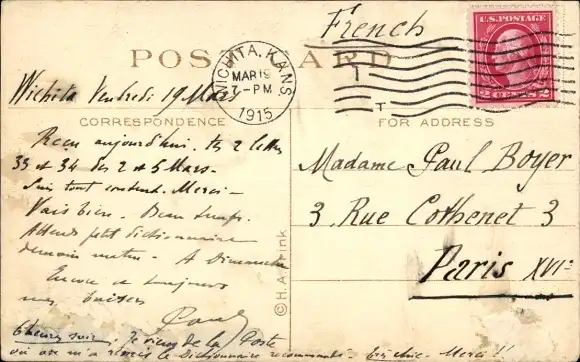 French
U.S. POSTAGE
2 CENTS 2
POST CARD
WICHITA, KANS
MAR 19
7-PM
1915
Wichita Vendredi 19 Mars
CORRESPONDENCE
FOR ADDRESS
Reçu aujourd'hui tes 2 lettres
33 et 34 des 2 et 5 Mars.
Suis tout content. Merci.
Vais bien. Beau temps.
Attends petit dictionnaire
demain matin. A Dimanche
Encore et toujours
mes baisers
Paul
Madame Paul Boyer
3, Rue Cothenet 3
Paris XVIe
© H.A. Fink
6 heures soir. Je viens de la Poste
où on m'a remis le dictionnaire recommandé. Merci!!